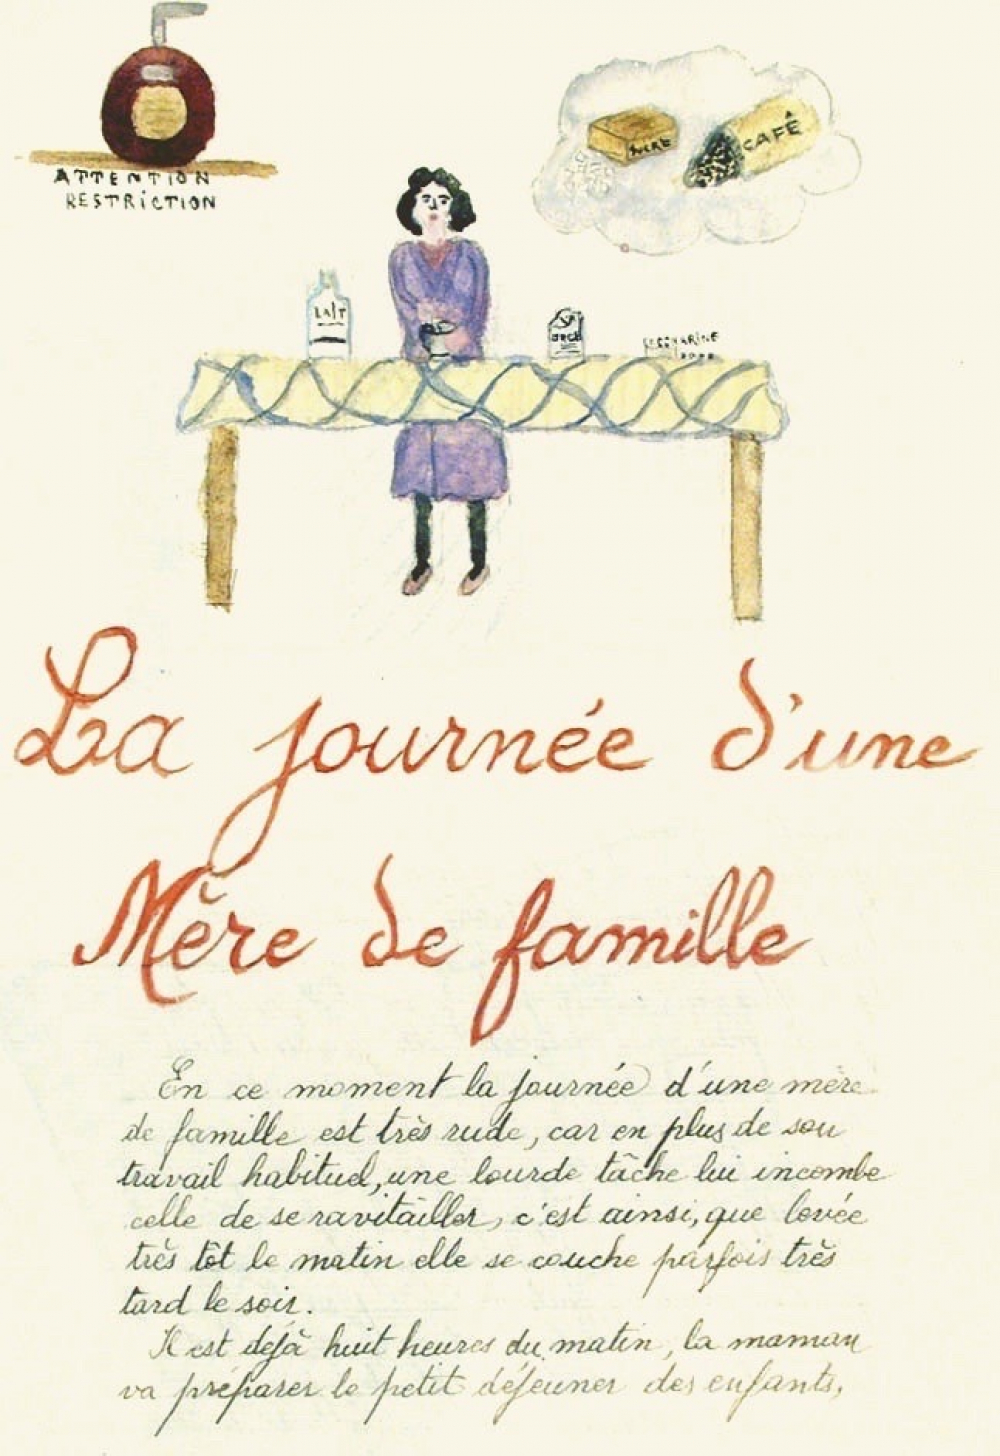 ATTENTION
RESTRICTION
SUCRE
CAFÉ
LAIT
ORGE
SACCHARINE
La journée d'une
Mère de famille
En ce moment la journée d'une mère
de famille est très rude, car en plus de son
travail habituel, une lourde tâche lui incombe
celle de se ravitailler, c'est ainsi, que levée
très tôt le matin elle se couche parfois très
tard le soir.
Il est déjà huit heures du matin, la maman
va préparer le petit déjeuner des enfants,